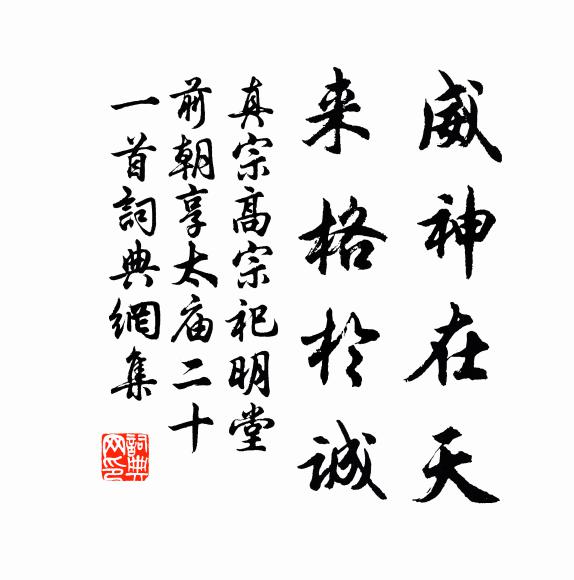 威神在天
来格於诚
真宗高宗祀明堂
前朝享太庙二十
一首詞典網集
詞典
网印